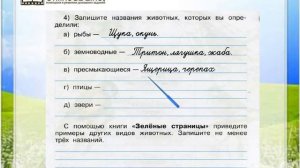 4) Запишите названия животных, которых вы опре-
делили:
а) рыбы — Щука, окунь.
б) земноводные — Тритон, лягушка, жаба.
в) пресмыкающиеся — Ящерица, черепаха
г) птицы —
д) звери —
С помощью книги «Зелёные страницы» приведите
примеры других видов животных. Запишите не менее
трёх названий.